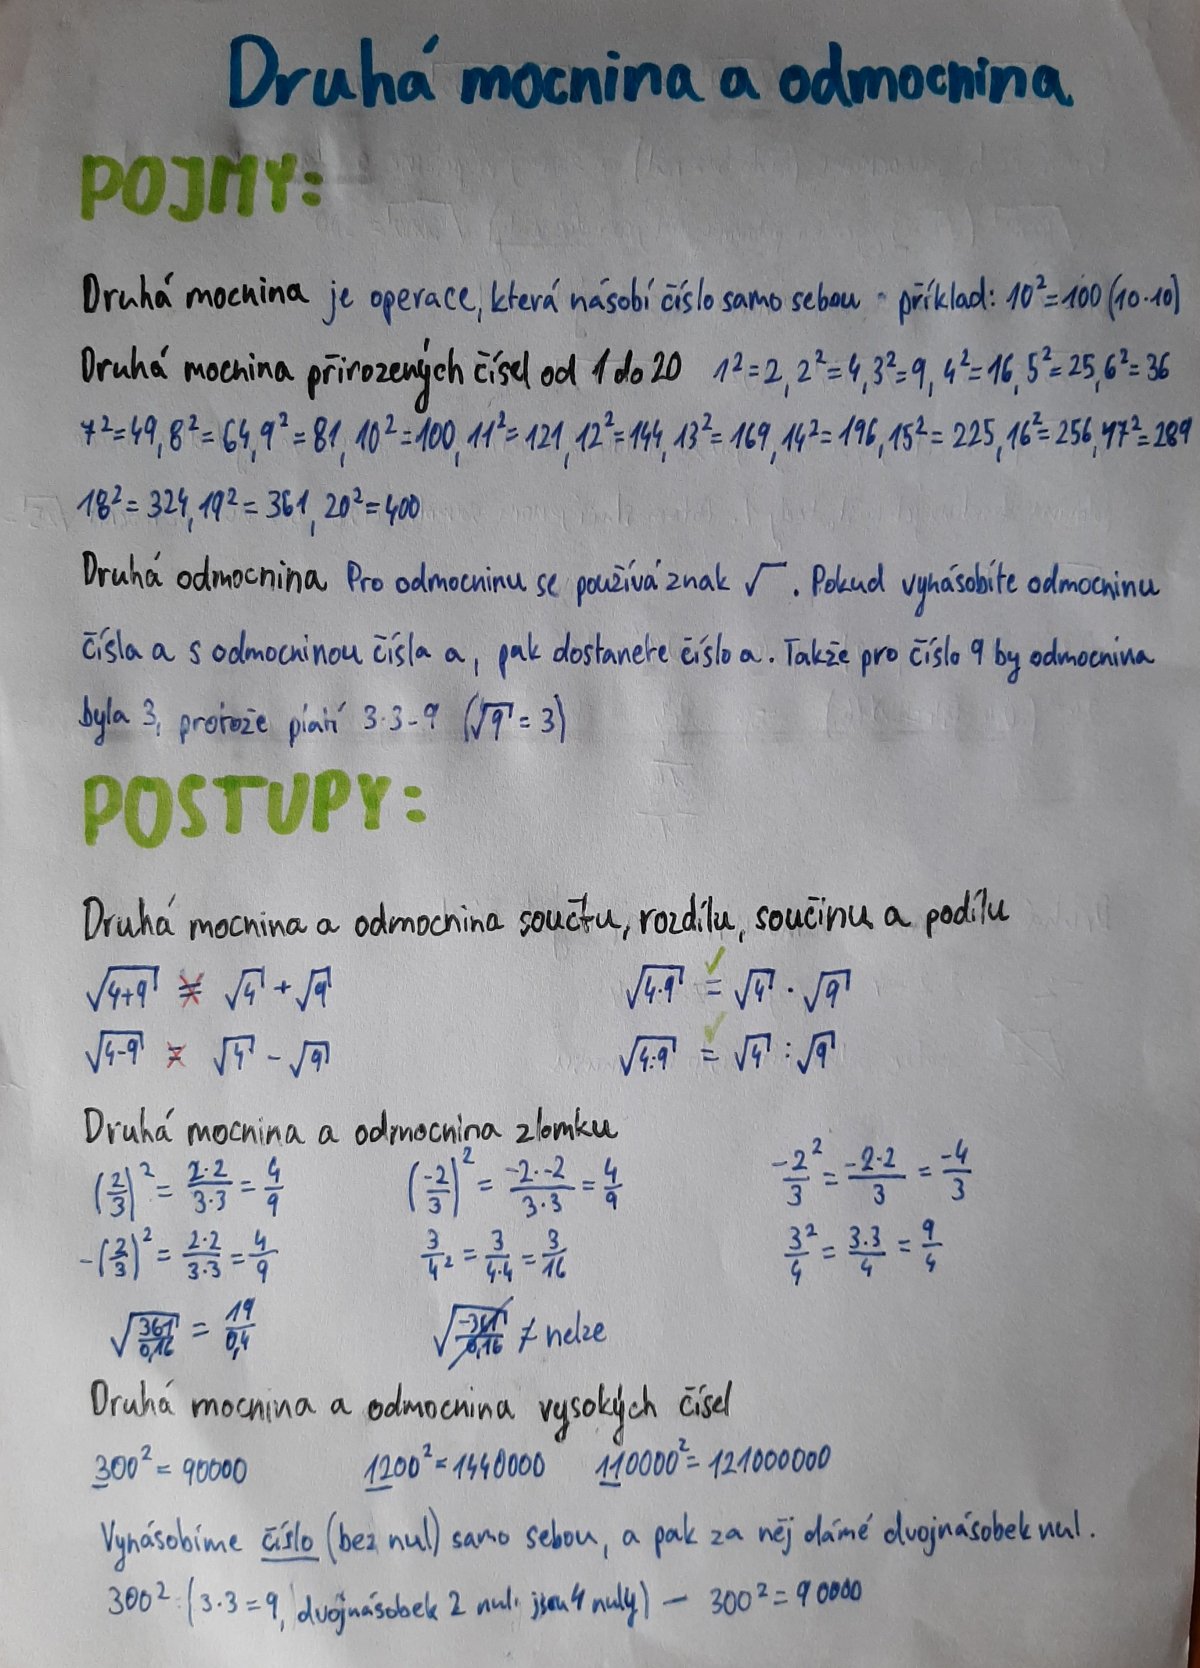 Druhá mocnina a odmocnina
POJMY:
Druhá mocnina je operace, která násobí číslo samo sebou - příklad: 10²=100 (10·10)
Druhá mocnina přirozených čísel od 1 do 20 1²=2, 2²=4, 3²=9, 4²=16, 5²=25, 6²=36
7²=49, 8²=64, 9²=81, 10²=100, 11²=121, 12²=144, 13²=169, 14²=196, 15²=225, 16²=256, 17²=289
18²=324, 19²=361, 20²=400
Druhá odmocnina Pro odmocninu se používá znak √ . Pokud vynásobíte odmocninu
čísla a s odmocninou čísla a, pak dostanete číslo a. Takže pro číslo 9 by odmocnina
byla 3, protože platí 3·3-9 (√9 = 3)
POSTUPY:
Druhá mocnina a odmocnina součtu, rozdílu, součinu a podílu
√(4+9) = √4 + √9 √(4·9) = √4 · √9
√(4-9) = √4 - √9 √(4:9) = √4 : √9
Druhá mocnina a odmocnina zlomku
(2/3)² = 2·2/3·3 = 4/9 (-2/3)² = -2·-2/3·3 = 4/9 -2²/3 = -2·2/3 = -4/3
-(2/3)² = 2·2/3·3 = 4/9 3/4² = 3/4·4 = 3/16 3²/4 = 3·3/4 = 9/4
√(361/0,16) = 19/0,4 √(-361/0,16) ≠ nelze
Druhá mocnina a odmocnina vysokých čísel
300² = 90000 1200² = 1440000 110000² = 121000000
Vynásobíme číslo (bez nul) samo sebou, a pak za něj dámé dvojnásobek nul.
300² : (3·3=9, dvojnásobek 2 nul jsou 4 nuly) - 300² = 90000